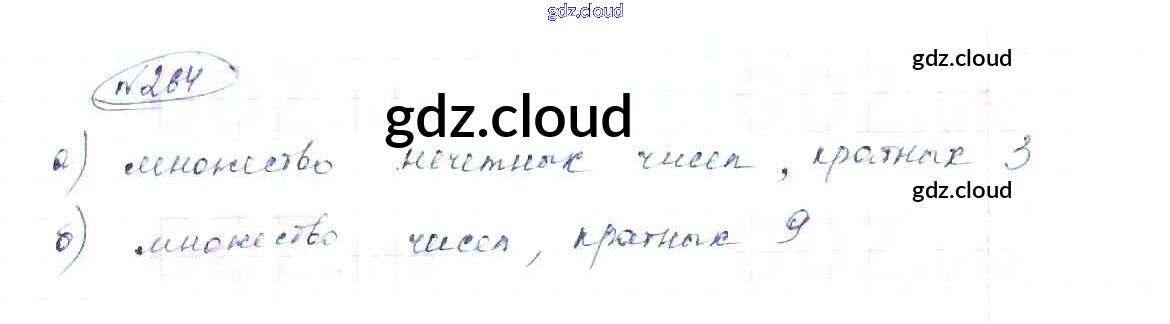 gdz.cloud
gdz.cloud
№264
gdz.cloud
а) множество нечетных чисел, кратных 3
gdz.cloud
б) множество чисел, кратных 9